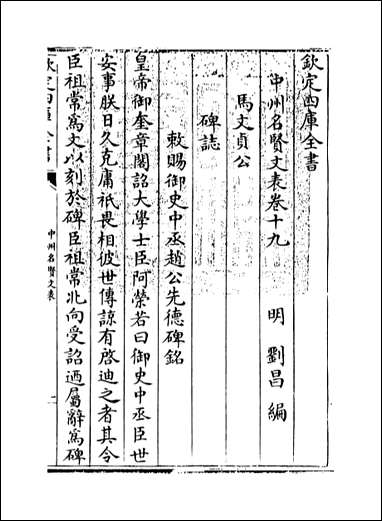 欽定四庫全書
中州名賢文表卷十九　明　劉昌編
馬文貞公
碑誌
敕賜御史中丞趙公先德碑銘
皇帝御奎章閣詔大學士臣阿榮若曰御史中丞臣世
安事朕日久克庸祇畏相彼世傳諒有啓迪之者其令
臣祖常為文以刻於碑臣祖常北向受詔廼屬辭為碑
欽定四庫全書
中州名賢文表
一